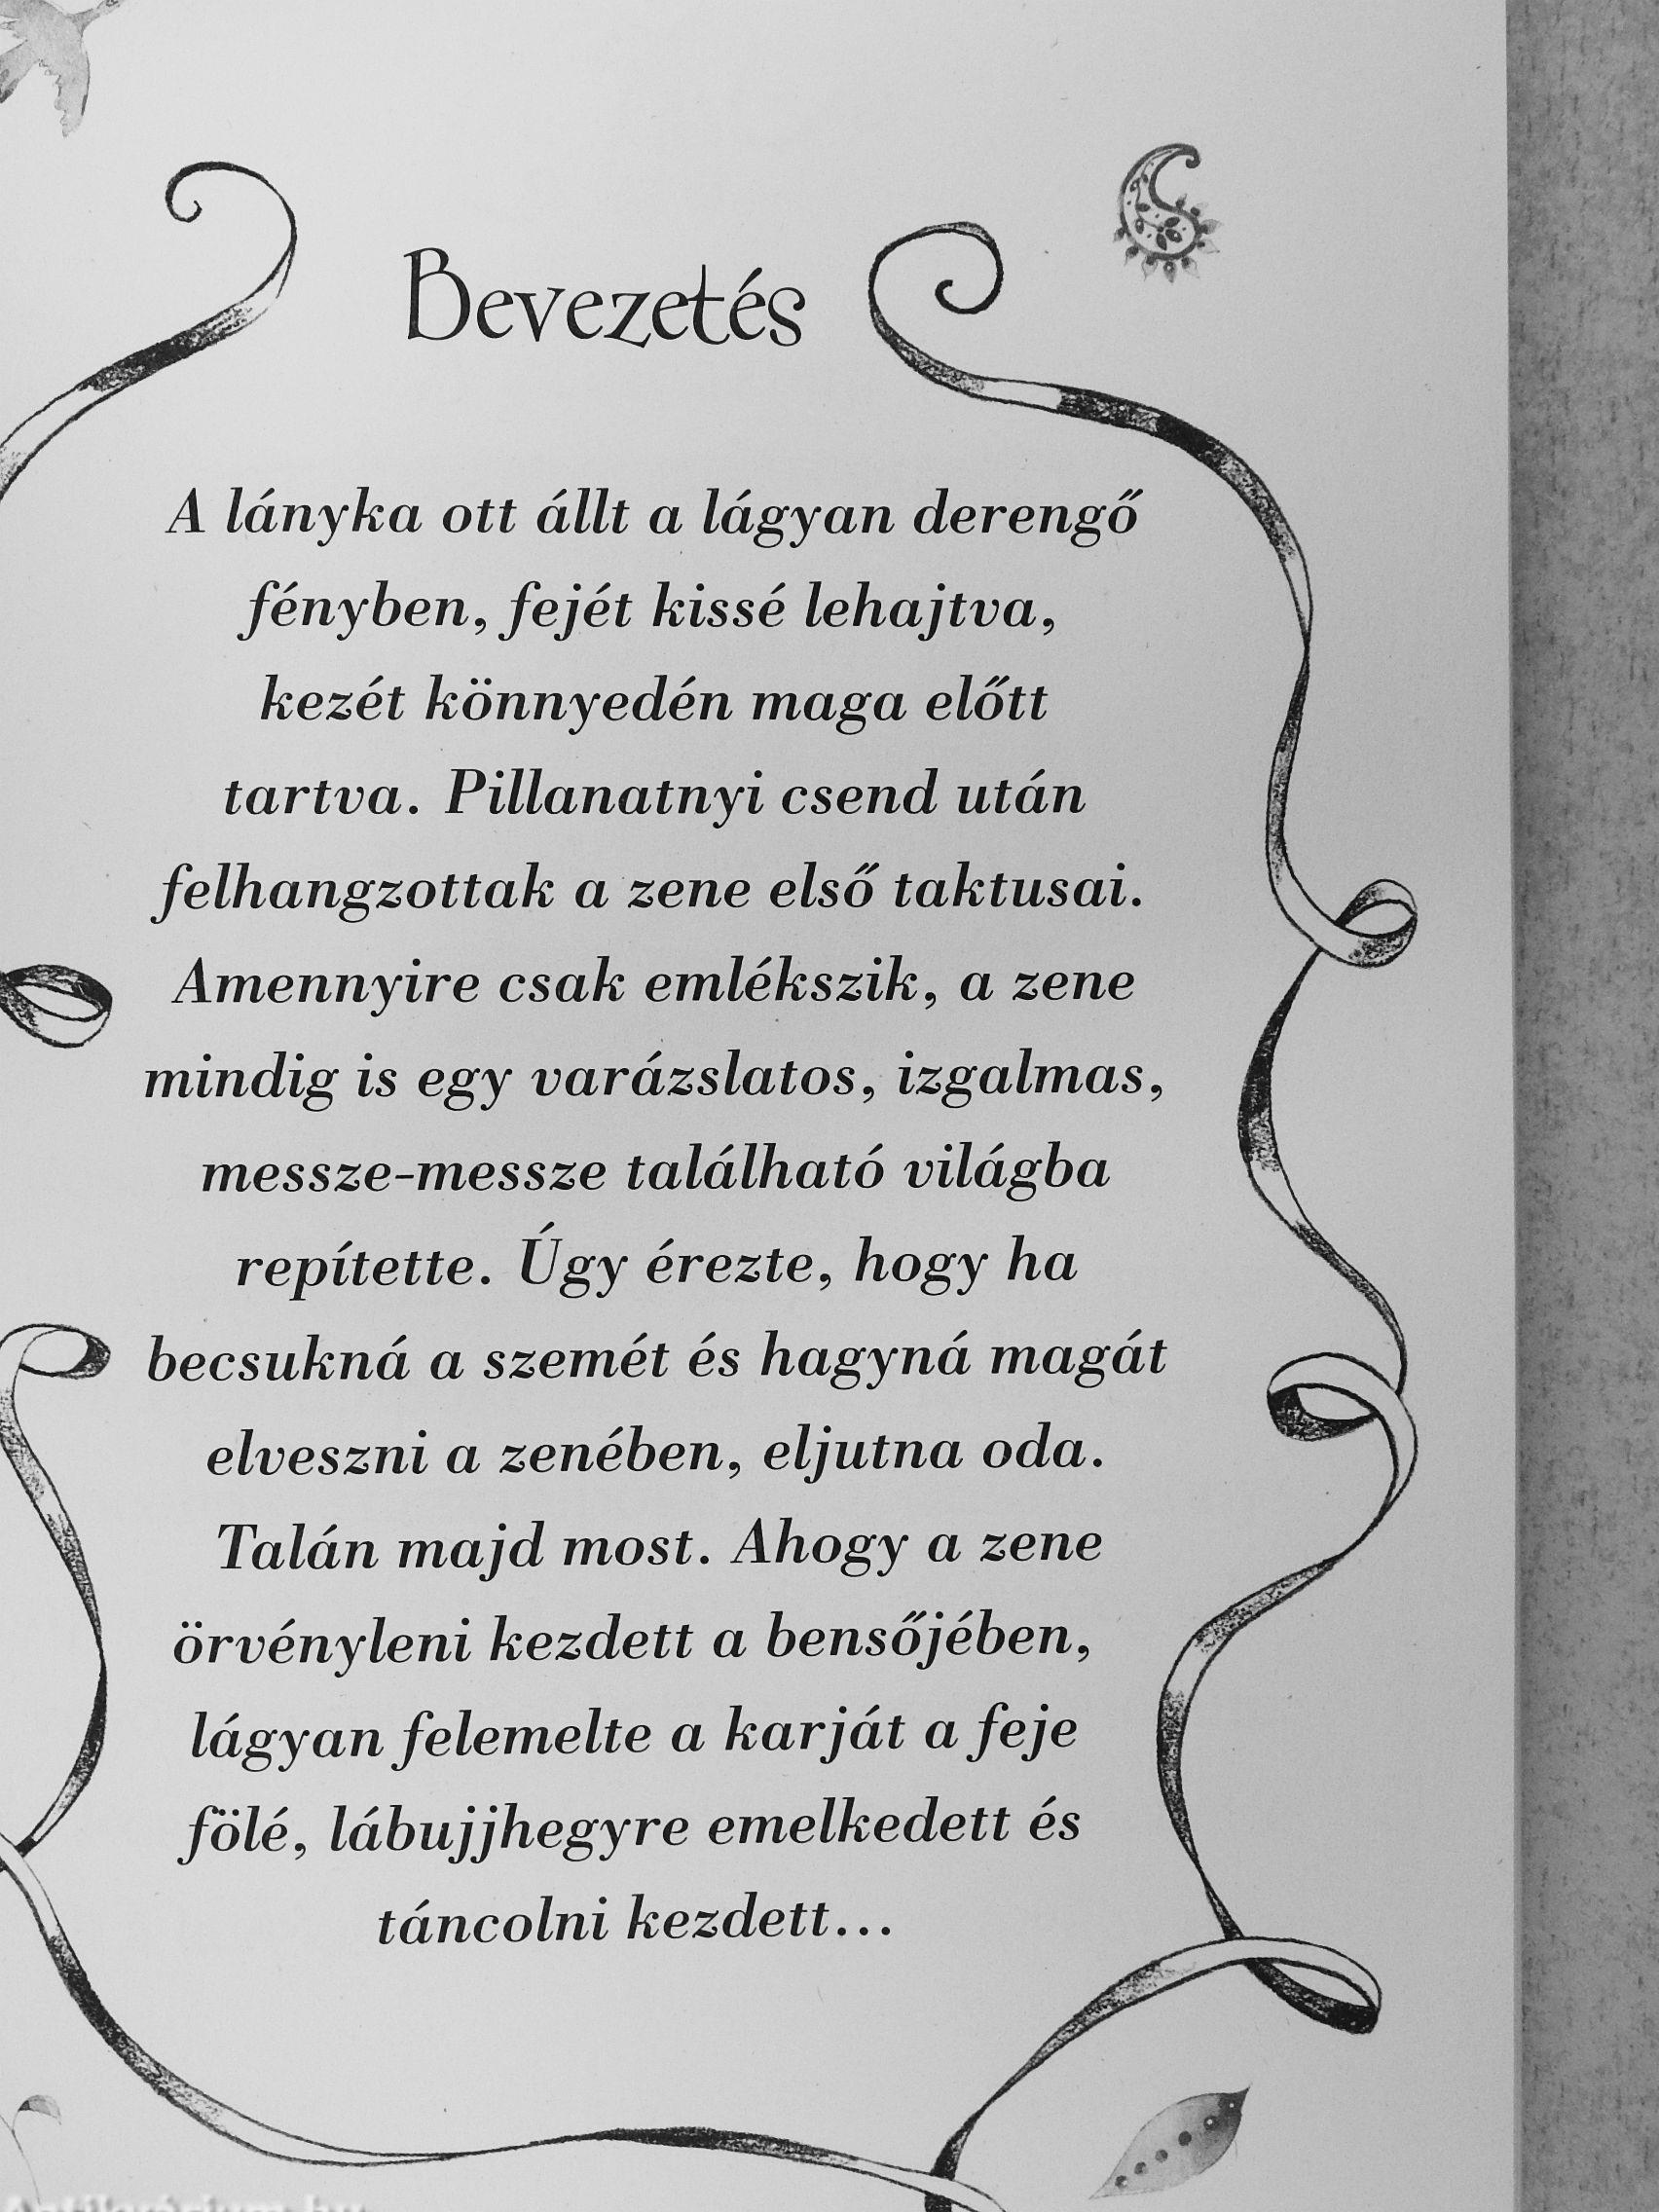 Bevezetés
A lányka ott állt a lágyan derengő
fényben, fejét kissé lehajtva,
kezét könnyedén maga előtt
tartva. Pillanatnyi csend után
felhangzottak a zene első taktusai.
Amennyire csak emlékszik, a zene
mindig is egy varázslatos, izgalmas,
messze-messze található világba
repítette. Úgy érezte, hogy ha
becsukná a szemét és hagyná magát
elveszni a zenében, eljutna oda.
Talán majd most. Ahogy a zene
örvényleni kezdett a bensőjében,
lágyan felemelte a karját a feje
fölé, lábujjhegyre emelkedett és
táncolni kezdett...